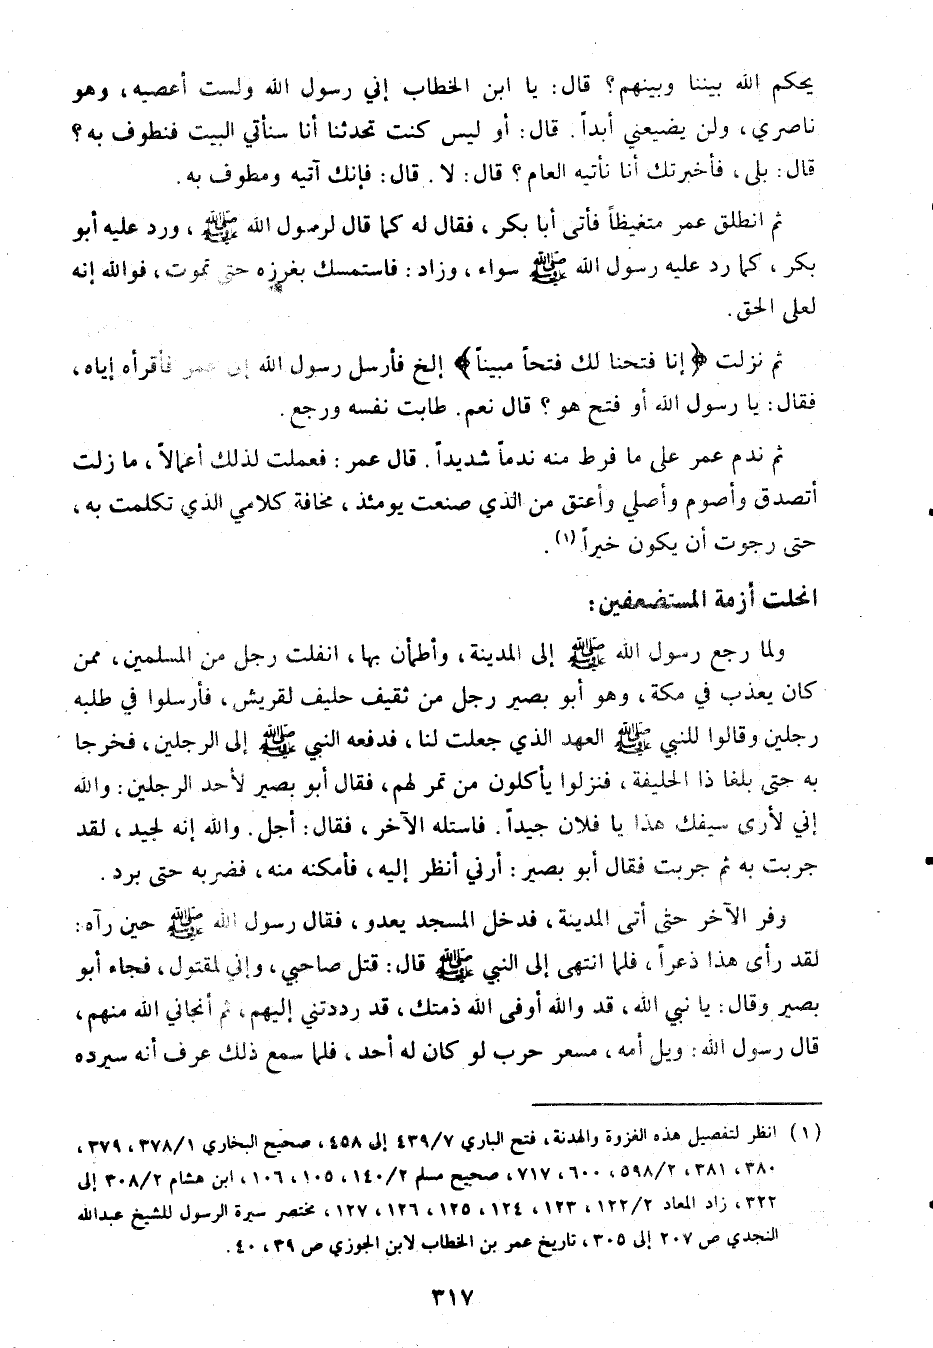 يحكم الله بيننا وبينهم؟ قال: يا ابن الخطاب إني رسول الله ولست أعصيه، وهو
ناصري، ولن يضيعني أبداً. قال: أو ليس كنت تحدثنا أنا سنأتي البيت فنطوف به؟
قال: بلى، فأخبرتك أنا نأتيه العام؟ قال: لا. قال: فإنك آتيه ومطوف به.
ثم انطلق عمر متغيظاً فأتى أبا بكر، فقال له كما قال لرسول الله ﷺ، ورد عليه أبو
بكر، كما رد عليه رسول الله ﷺ سواء، وزاد: فاستمسك بغرزه حتى تموت، فوالله إنه
لعلى الحق.
ثم نزلت ﴿إنا فتحنا لك فتحاً مبيناً﴾ إلخ فأرسل رسول الله إلى عمر فأقرأه إياه،
فقال: يا رسول الله أو فتح هو؟ قال نعم. طابت نفسه ورجع.
ثم ندم عمر على ما فرط منه ندماً شديداً. قال عمر: فعملت لذلك أعمالاً، ما زلت
أتصدق وأصوم وأصلي وأعتق من الذي صنعت يومئذ، مخافة كلامي الذي تكلمت به،
حتى رجوت أن يكون خيراً (١).
انحلت أزمة المستضعفين:
ولما رجع رسول الله ﷺ إلى المدينة، وأطمأن بها، انفلت رجل من المسلمين، ممن
كان يعذب في مكة، وهو أبو بصير رجل من ثقيف حليف لقريش، فأرسلوا في طلبه
رجلين وقالوا للنبي ﷺ العهد الذي جعلت لنا، فدفعه النبي ﷺ إلى الرجلين، فخرجا
به حتى بلغا ذا الحليفة، فنزلوا يأكلون من تمر لهم، فقال أبو بصير لأحد الرجلين: والله
إني لأرى سيفك هذا يا فلان جيداً. فاستله الآخر، فقال: أجل. والله إنه لجيد، لقد
جربت به ثم جربت فقال أبو بصير: أرني أنظر إليه، فأمكنه منه، فضربه حتى برد.
وفر الآخر حتى أتى المدينة، فدخل المسجد يعدو، فقال رسول الله ﷺ حين رآه:
لقد رأى هذا ذعراً، فلما انتهى إلى النبي ﷺ قال: قتل صاحبي، وإني لمقتول، فجاء أبو
بصير وقال: يا نبي الله، قد والله أوفى الله ذمتك، قد رددتني إليهم، ثم أنجاني الله منهم،
قال رسول الله: ويل أمه، مسعر حرب لو كان له أحد، فلما سمع ذلك عرف أنه سيرده
(١) انظر لتفصيل هذه الغزوة والهدنة، فتح الباري ٤٣٩/٧ إلى ٤٥٨، صحيح البخاري ٣٧٨/١، ٣٧٩،
٣٨٠، ٣٨١، ٥٩٨/٢، ٦٠٠، ٧١٧، صحيح مسلم ١٤٠/٢، ١٠٥، ١٠٦، ابن هشام ٣٠٨/٢ إلى
٣٢٢، زاد المعاد ١٢٢/٢، ١٢٣، ١٢٤، ١٢٥، ١٢٦، ١٢٧، مختصر سيرة الرسول للشيخ عبدالله
النجدي ص ٢٠٧ إلى ٣٠٥، تاريخ عمر بن الخطاب لابن الجوزي ص ٣٩، ٤٠.
٣١٧